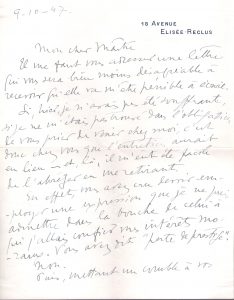 9-10-47
18 AVENUE
ELISÉE-RECLUS
Mon cher Maître
Il me faut vous adresser une lettre
qui vous sera bien moins désagréable à
recevoir qu'elle va m'être pénible à écrire.
Si, hier, je n'avais pas été souffrant,
si je ne m'étais pas trouvé dans l'obligation
de vous prier de venir chez moi, c'est
donc chez vous que l'entretien aurait
eu lieu - et là, il m'eut été facile
de l'abréger en me retirant.
En effet, vous avez cru devoir em-
-ployer une expression que je ne puis
admettre dans la bouche de celui à
qui j'allais confier mes intérêts mo-
-raux. Vous avez dit "porte de prostituée".
Non.
Puis, mettant un comble à vos